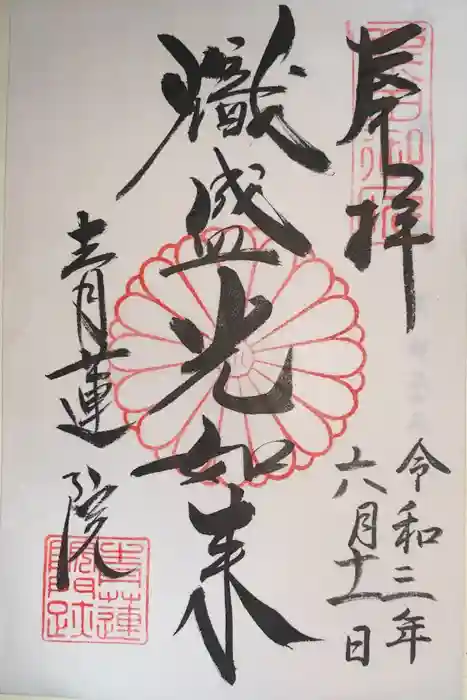 奉拝
令和三年
六月十一日
熾盛光如来
青蓮院
青蓮院門跡